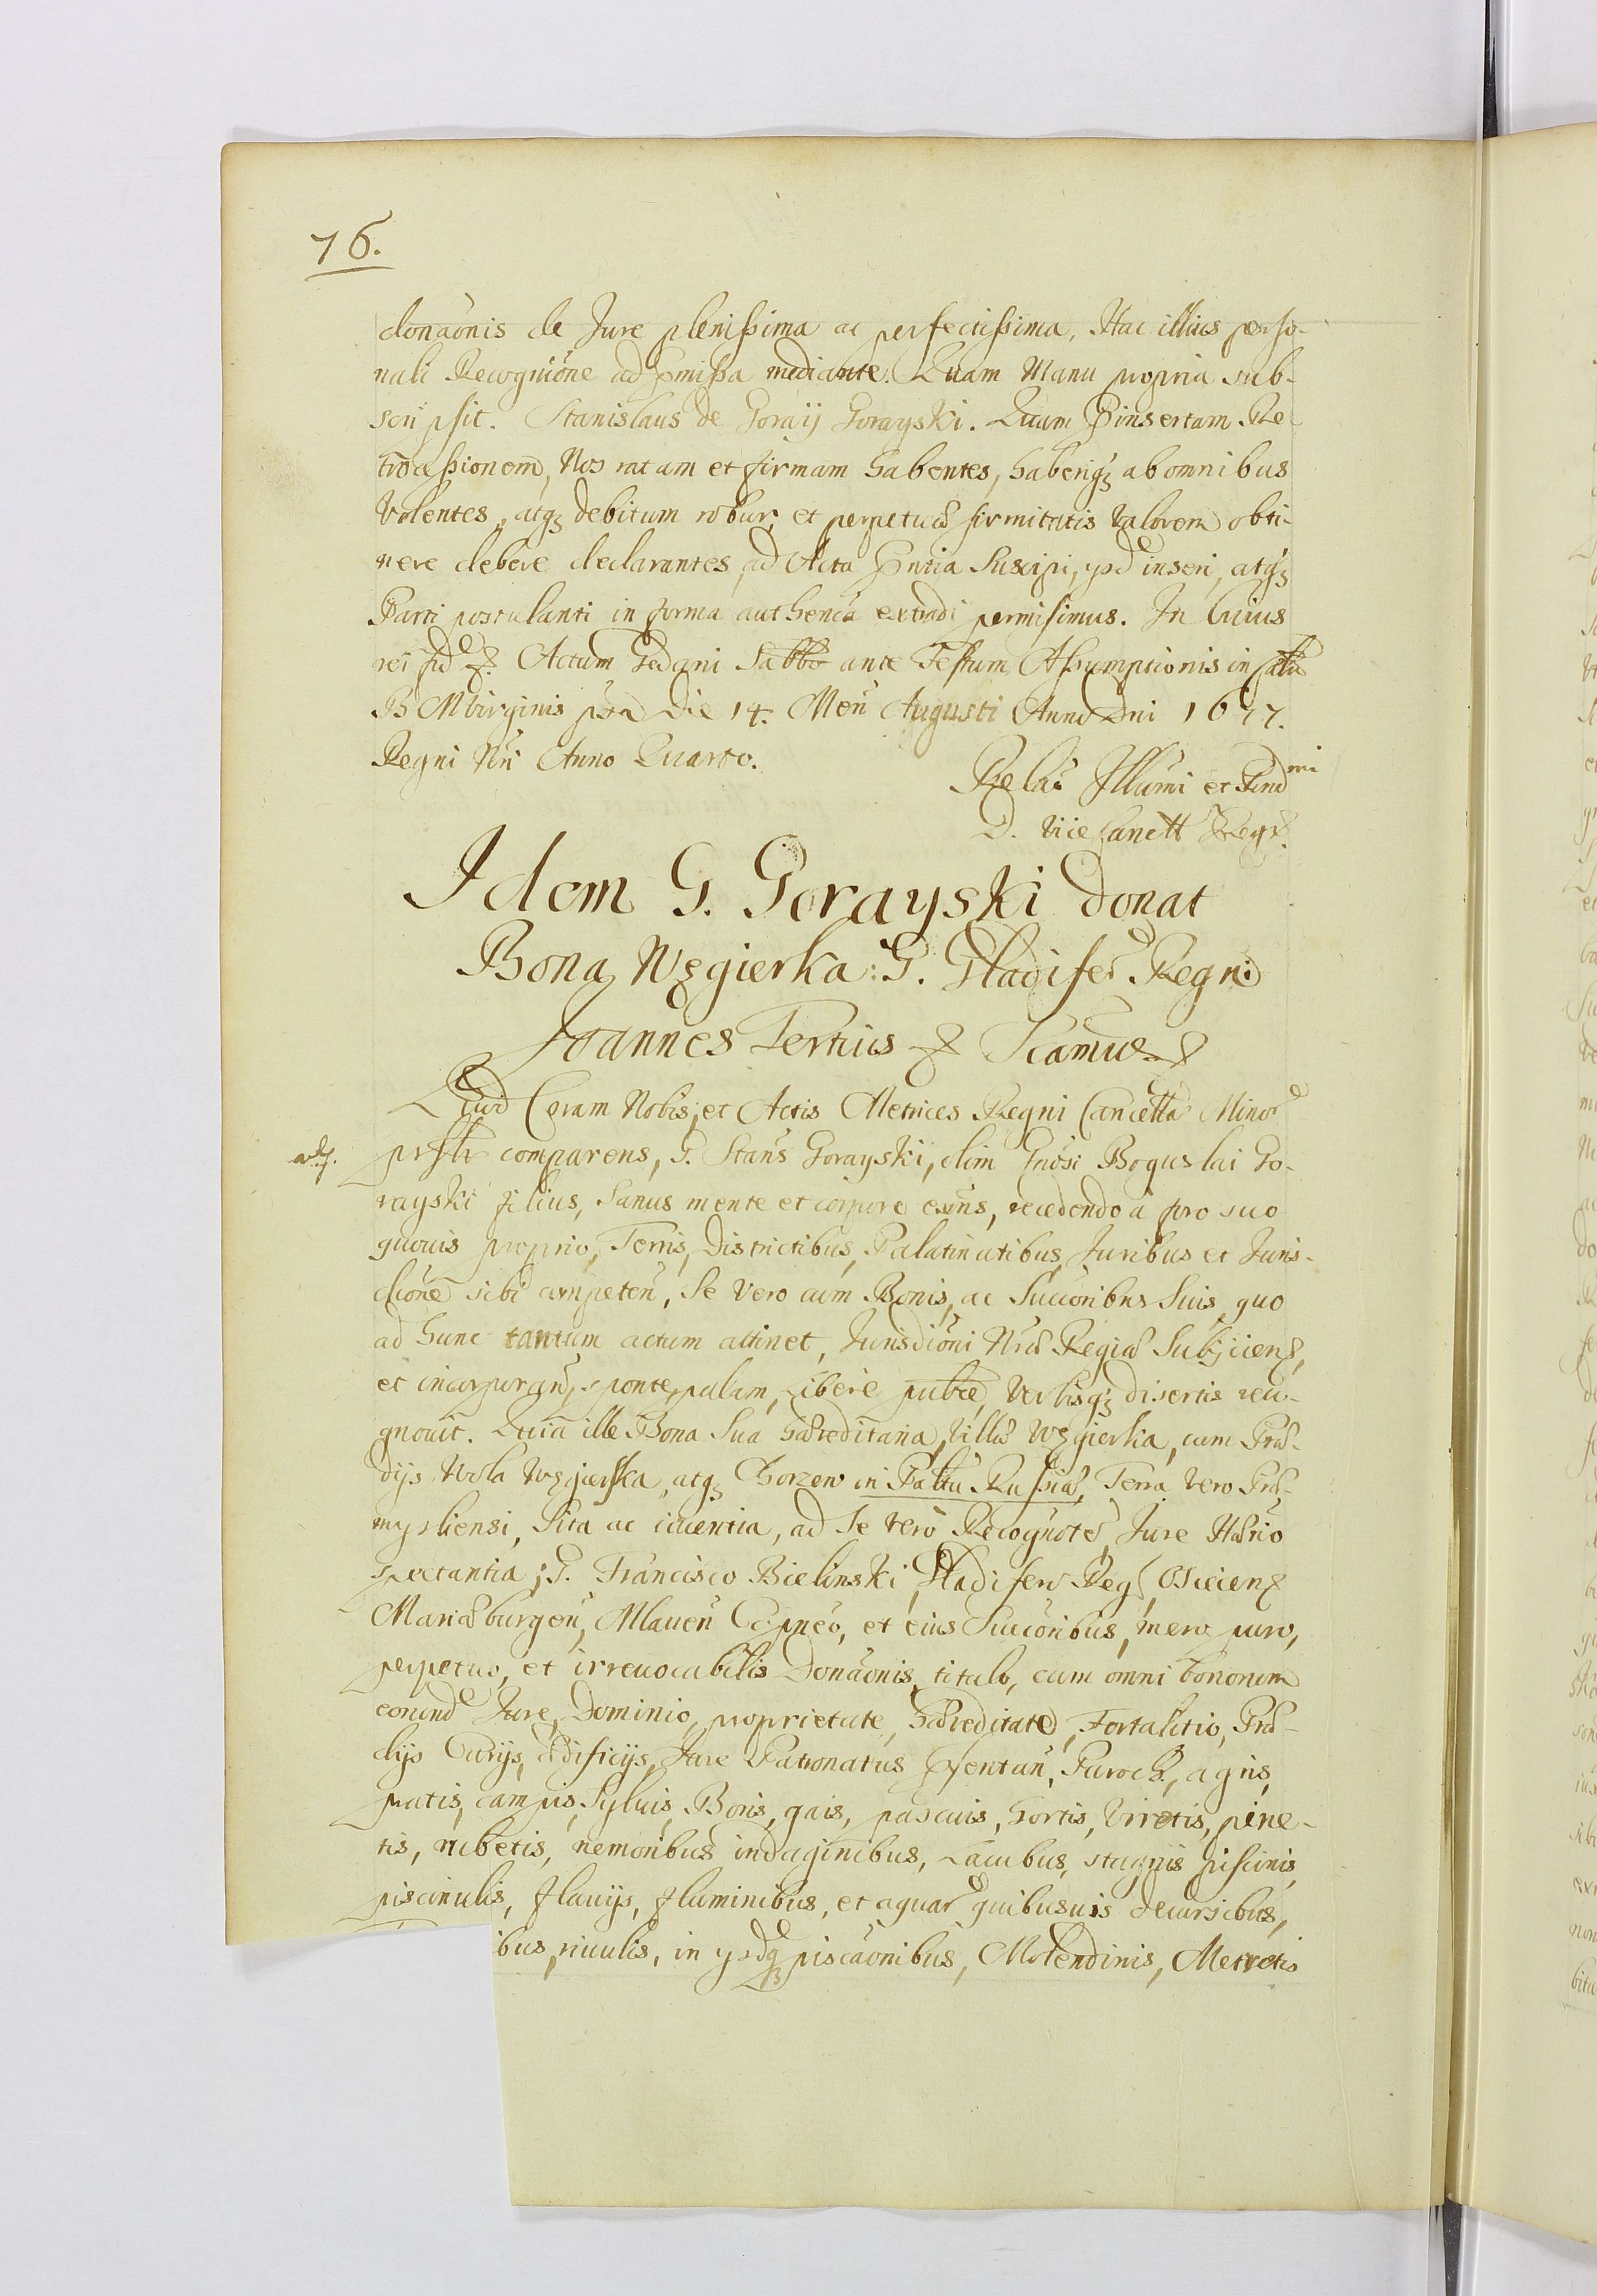 76.
donaonis de Jure plenissima ac perfectissima, Hac illius perso-
nali Recognione ad pmissa mediante. Quam Manu propria sub-
scripsit. Stanislaus de Goraij Gorayski. Quam pinsertam Re-
trocessionem, Nos ratam et firmam habentes, haberiq3 ab omnibus
volentes, atq3 debitum robur, et perpetuæ firmitatis valorem obti-
nere debere declarantes, ad Acta pntia suscipi, ysd inseri, atq3
Parti postulanti in forma authenca extradi permisimus. In Cuius
rei fid Actum Gedani Sabbo ante Festum Assumptionis in
B M Virginis pxa Die 14. Men Augusti Anno Dni 1677.
Regni Nri Anno Quarto.
Relaō Illūmi et Rnd mi
D. Vice Cancell Regn.
Idem G. Gorayski donat
Bona Węgierka: G. Gladifero Regni
Joannes Tertius Scamus
Quod Coram Nobis, et Actis Metrices Regni Cancellæ Minor
prstr comparens, G. Stans Gorayski, olim Gnosi Boguslai Go-
rayski filius, Sanus mente et corpore exns, recedendo a foro suo
quovis proprio, Terris, Districtibus, Palatinatibus, Juribus et Juris-
dicone sibi competen, Se vero cum Bonis, ac Succonibus Suis, quo
ad hunc tantum actum attinet, Jurisdioni Nræ Regiæ Subjiciens,
et incorporan, sponte, palam, Libere publce, verbisq3 disertis reco-
gnovit. Quia ille Bona Sua hæreditaria, Villæ Węgierka, cum Præ-
dijs Wola Węgierska, atq3 Chorzew in Palttu Russiæ, Terra vero Præ-
mysliensi, Sita ac iacentia, ad Se vero Recognotē, Jure Hærio
spectantia; G. Francisco Bielinski, Gladifero Reg, Osiecien
Mariæburgen, Mlaven Capneo, et eius Succonibus, mero puro,
perpetuo, et irrevocabilis Donaonis, titulo, cum omni bonorum
eorund Jure, Dominio, proprietate, hæreditate, Fortalitio, Præ-
dijs Curijs, ædificijs, Jure Patronatus psentan, Paroch, agris,
pratis, campis, Sylvis, Boris, gais, pascuis, hortis, Virretis, pine-
tis, rubetis, nemoribus indaginibus, Lacubus, stagnis piscinis,
piscinulis, fluvijs, fluminibus, et aquar quibusuis decursibus,
ibus, rivulis, in ysdq3 piscaonibus, Molendinis, Metretis